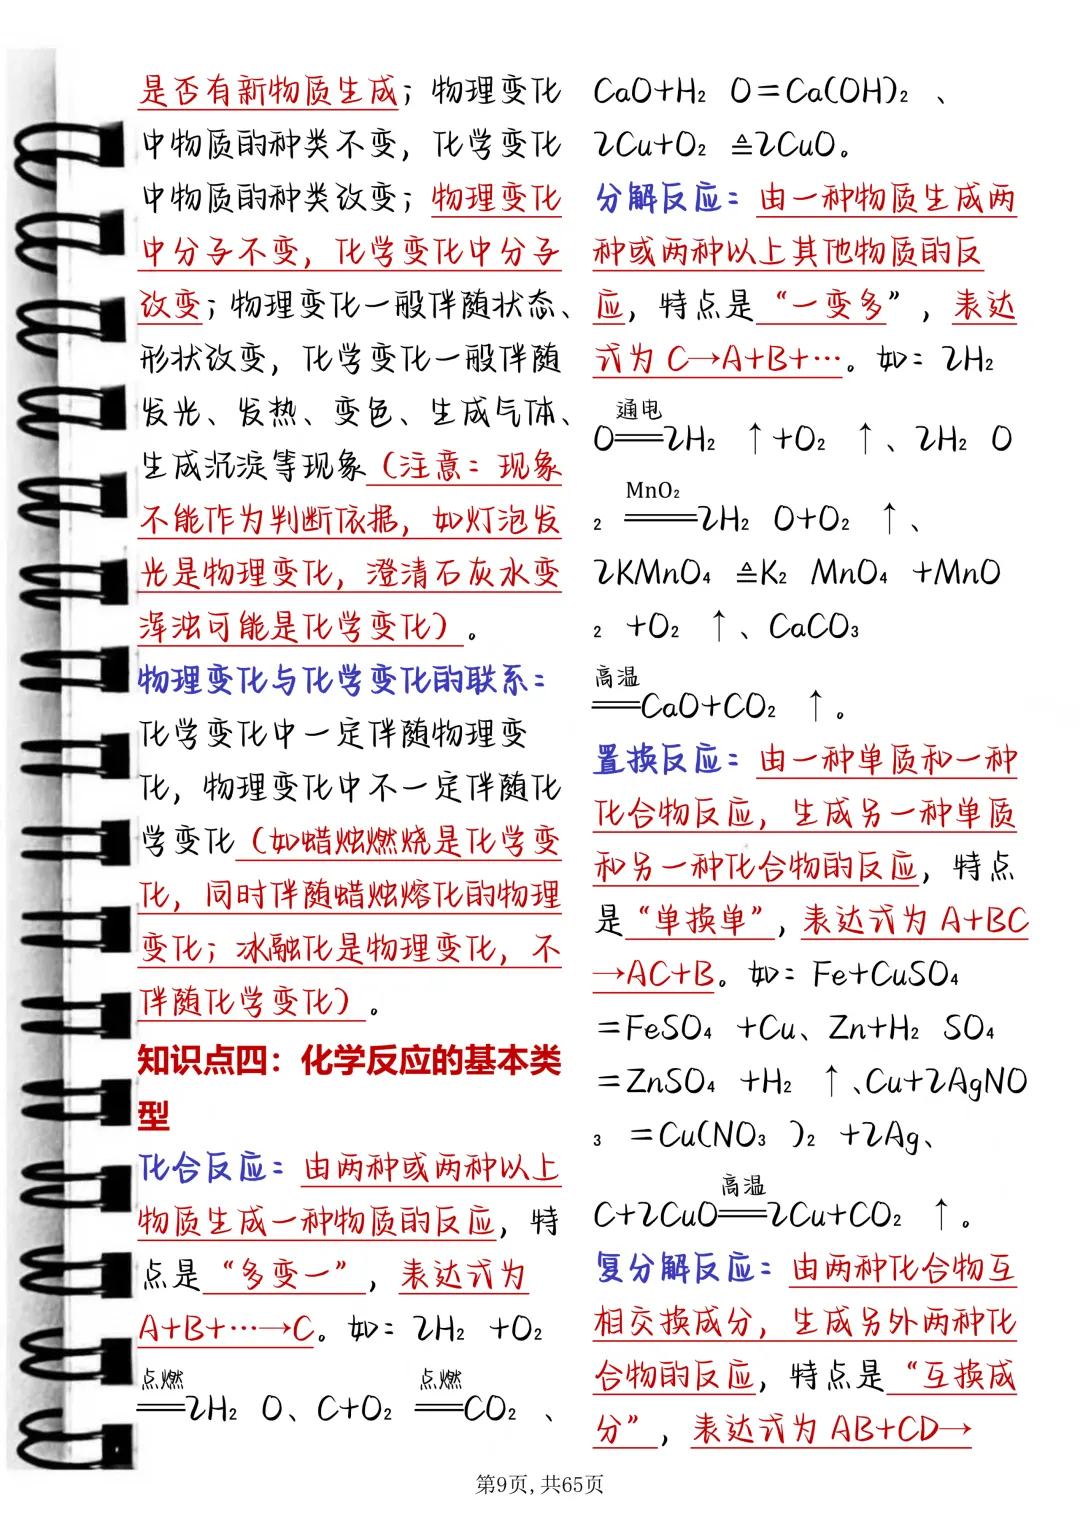 是否有新物质生成；物理变化
中物质的种类不变，化学变化
中物质的种类改变；物理变化
中分子不变，化学变化中分子
改变；物理变化一般伴随状态、
形状改变，化学变化一般伴随
发光、发热、变色、生成气体、
生成沉淀等现象（注意：现象
不能作为判断依据，如灯泡发
光是物理变化，澄清石灰水变
浑浊可能是化学变化）。
物理变化与化学变化的联系：
化学变化中一定伴随物理变
化，物理变化中不一定伴随化
学变化（如蜡烛燃烧是化学变
化，同时伴随蜡烛熔化的物理
变化；冰融化是物理变化，不
伴随化学变化）。
知识点四：化学反应的基本类
型
化合反应：由两种或两种以上
物质生成一种物质的反应，特
点是“多变一”，表达式为
A+B+…→C。如：2H₂ +O₂
点燃 点燃
══2H₂ O、C+O₂ ══CO₂ 、
CaO+H₂ O=Ca(OH)₂ 、
2Cu+O₂ ≙2CuO。
分解反应：由一种物质生成两
种或两种以上其他物质的反
应，特点是“一变多”，表达
式为 C→A+B+…。如：2H₂
通电
O══2H₂ ↑+O₂ ↑、2H₂ O
MnO₂
₂ ══2H₂ O+O₂ ↑、
2KMnO₄ ≙K₂ MnO₄ +MnO
₂ +O₂ ↑、CaCO₃
高温
══CaO+CO₂ ↑。
置换反应：由一种单质和一种
化合物反应，生成另一种单质
和另一种化合物的反应，特点
是“单换单”，表达式为 A+BC
→AC+B。如：Fe+CuSO₄
=FeSO₄ +Cu、Zn+H₂ SO₄
=ZnSO₄ +H₂ ↑、Cu+2AgNO
₃ =Cu(NO₃ )₂ +2Ag、
高温
C+2CuO══2Cu+CO₂ ↑。
复分解反应：由两种化合物互
相交换成分，生成另外两种化
合物的反应，特点是“互换成
分”，表达式为 AB+CD→
第9页,共65页